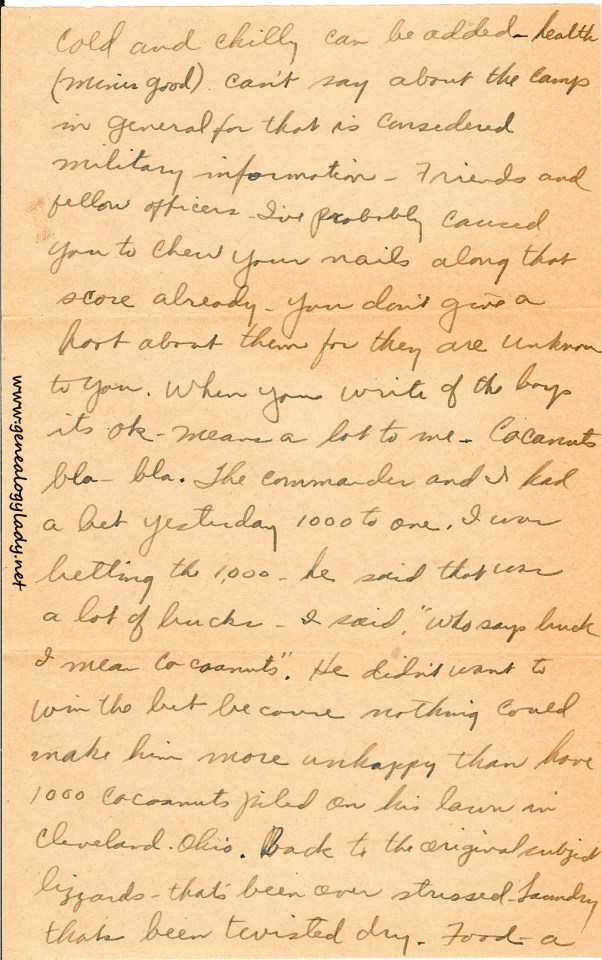 cold and chilly can be added - health
(minus good) can't say about the camp
in general for that is considered
military information - Friends and
fellow officers - I've probably caused
you to chew your nails along that
score already - you don't give a
hoot about them for they are unknown
to you. When you write of the boys
its ok - means a lot to me - Cocanuts
bla - bla. The commander and I had
a bet yesterday 1000 to one. I was
betting the 1,000 - he said that was
a lot of bucks - I said, "Who says buck
I mean cocoanuts". He didn't want to
win the bet because nothing could
make him more unhappy than have
1000 cocoanuts piled on his lawn in
Cleveland. Ohio. Back to the original subject
lizzards - that's been over stressed - Laundry
thats been twisted dry. - Food - a
www.genealogylady.net